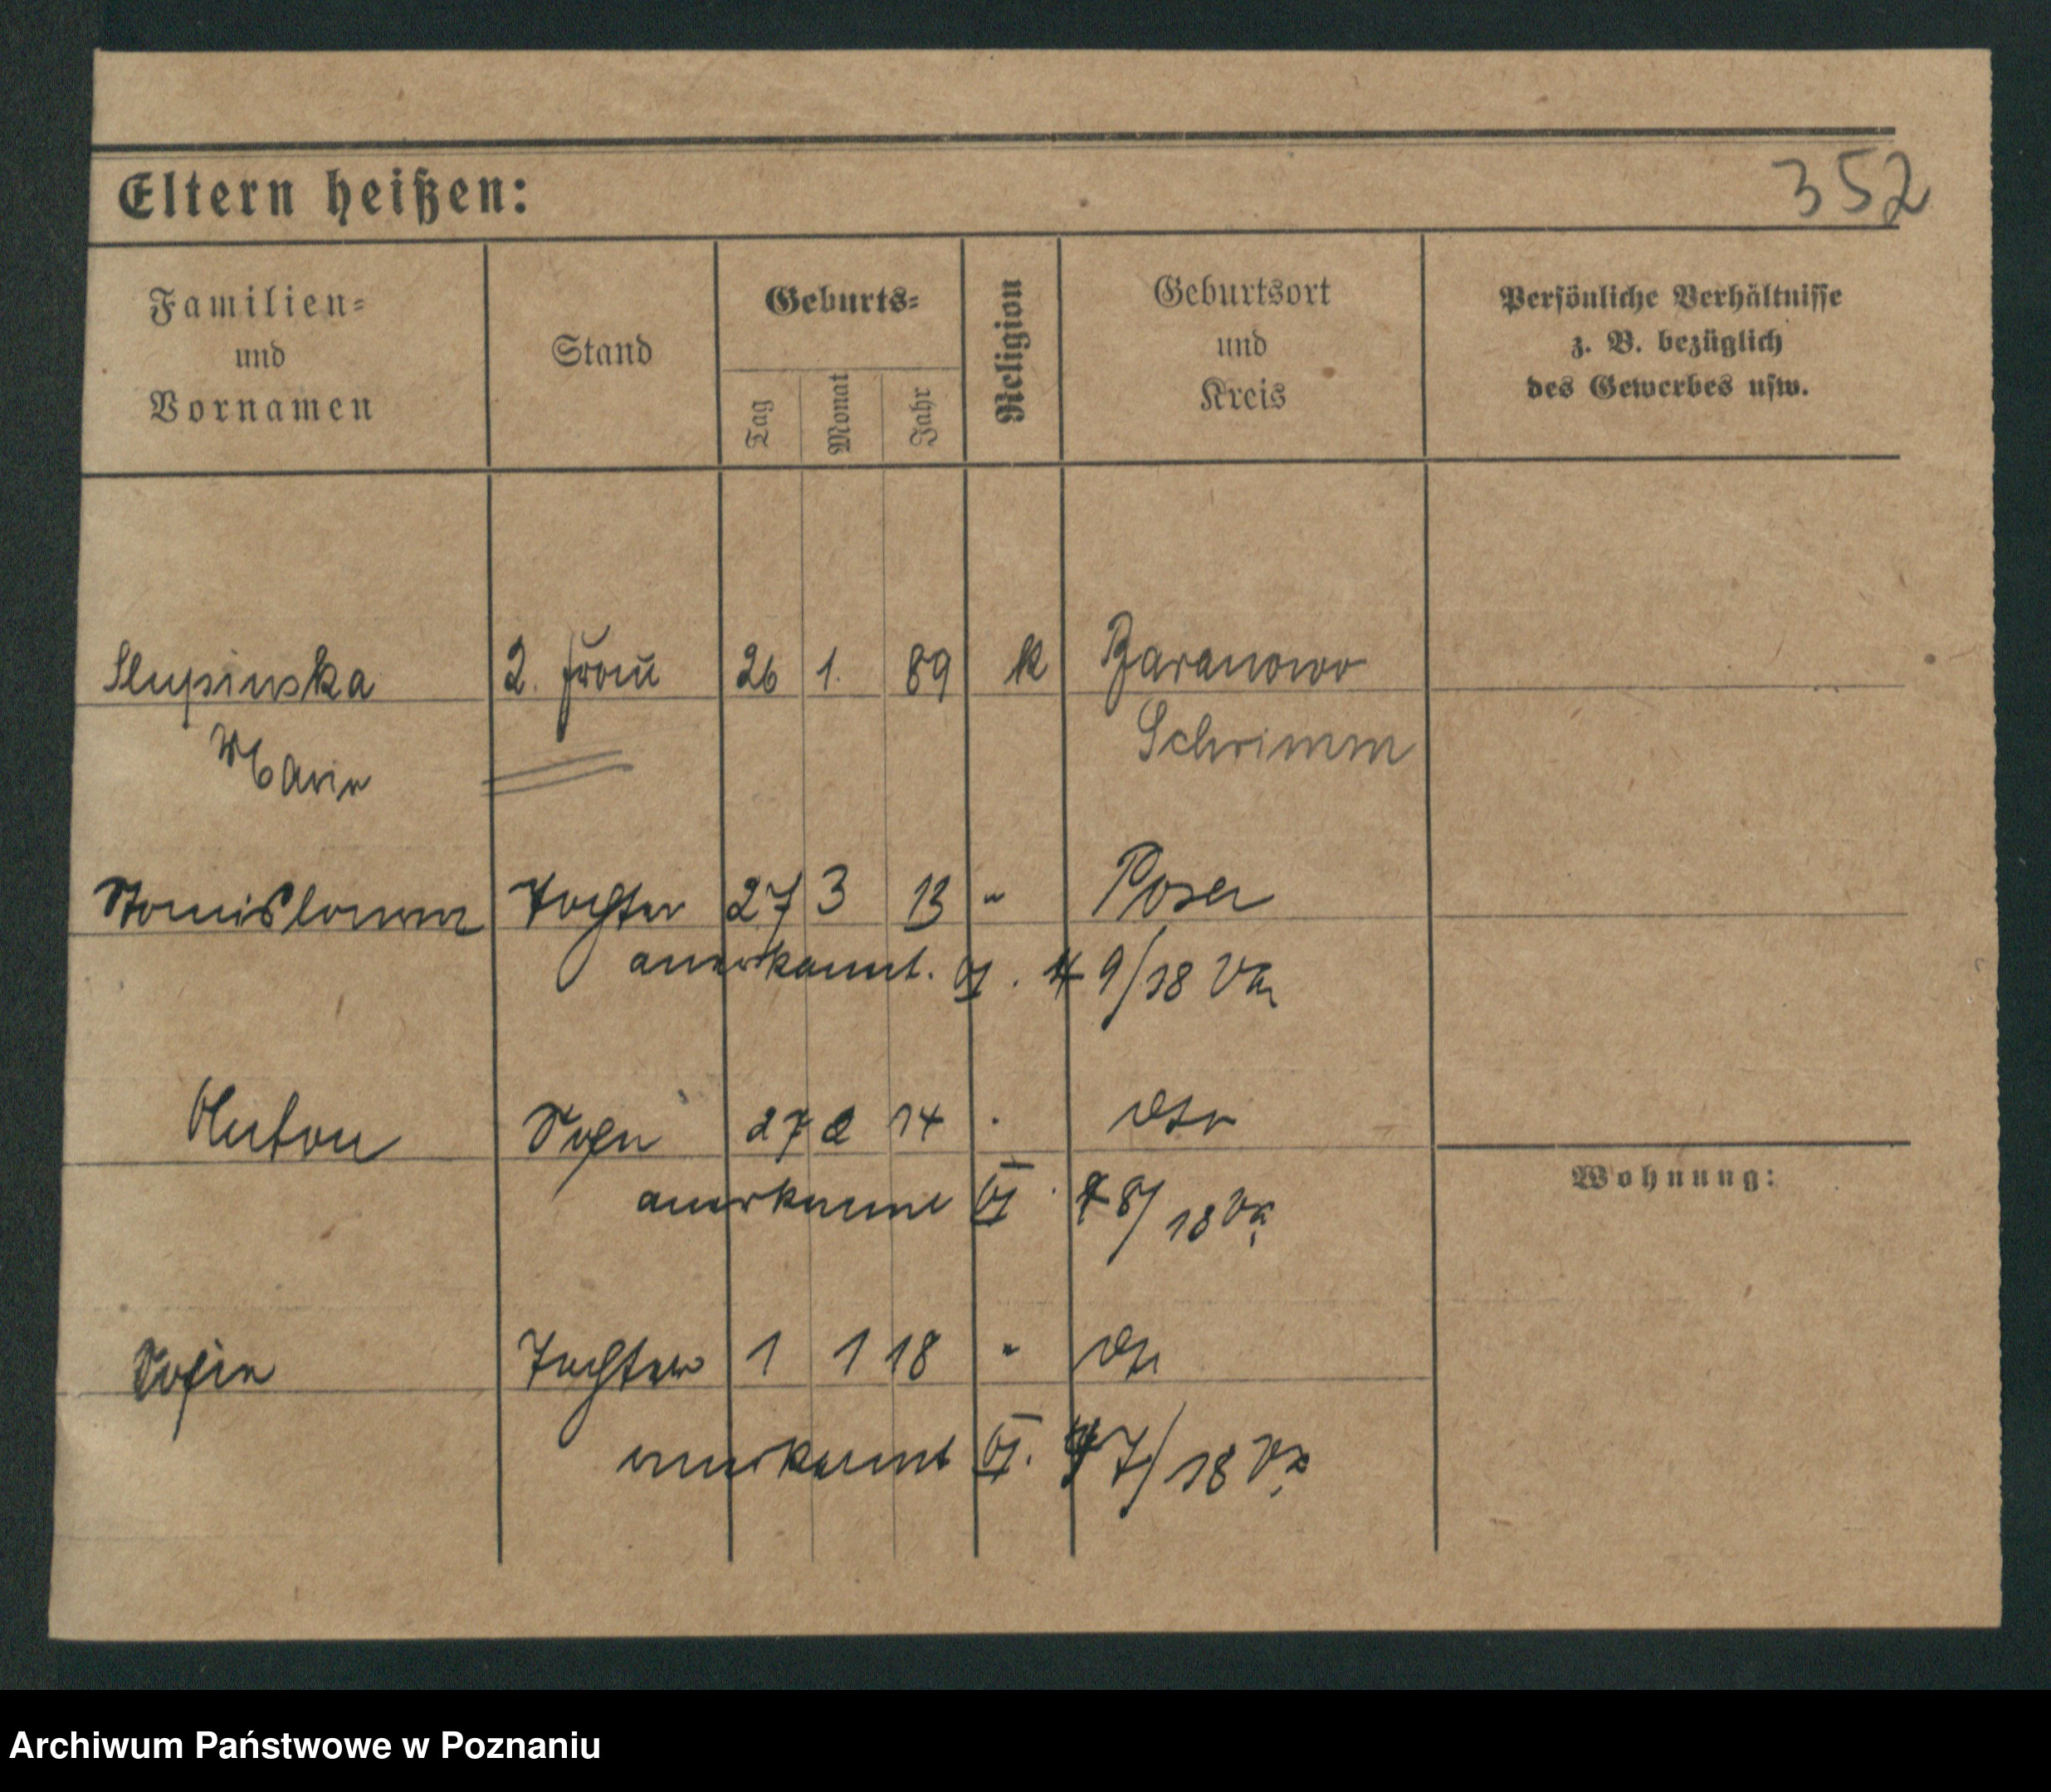 Eltern heißen:
352
Familien-
und
Vornamen
Stand
Geburts-
Tag
Monat
Jahr
Religion
Geburtsort
und
Kreis
Persönliche Verhältnisse
z. B. bezüglich
des Gewerbes usw.
Slupinska 2. Frau 26 1. 89 k Baranowo
Marie Schrimm
Stanislawa Tochter 27 3 13 " Posen
anerkannt. VI. 9/18
Anton Sohn 27 2 14 " dto
anerkannt VI 8/18
Wohnung:
Sofie Tochter 1 1 18 " dto
anerkannt VI. 7/18
Archiwum Państwowe w Poznaniu